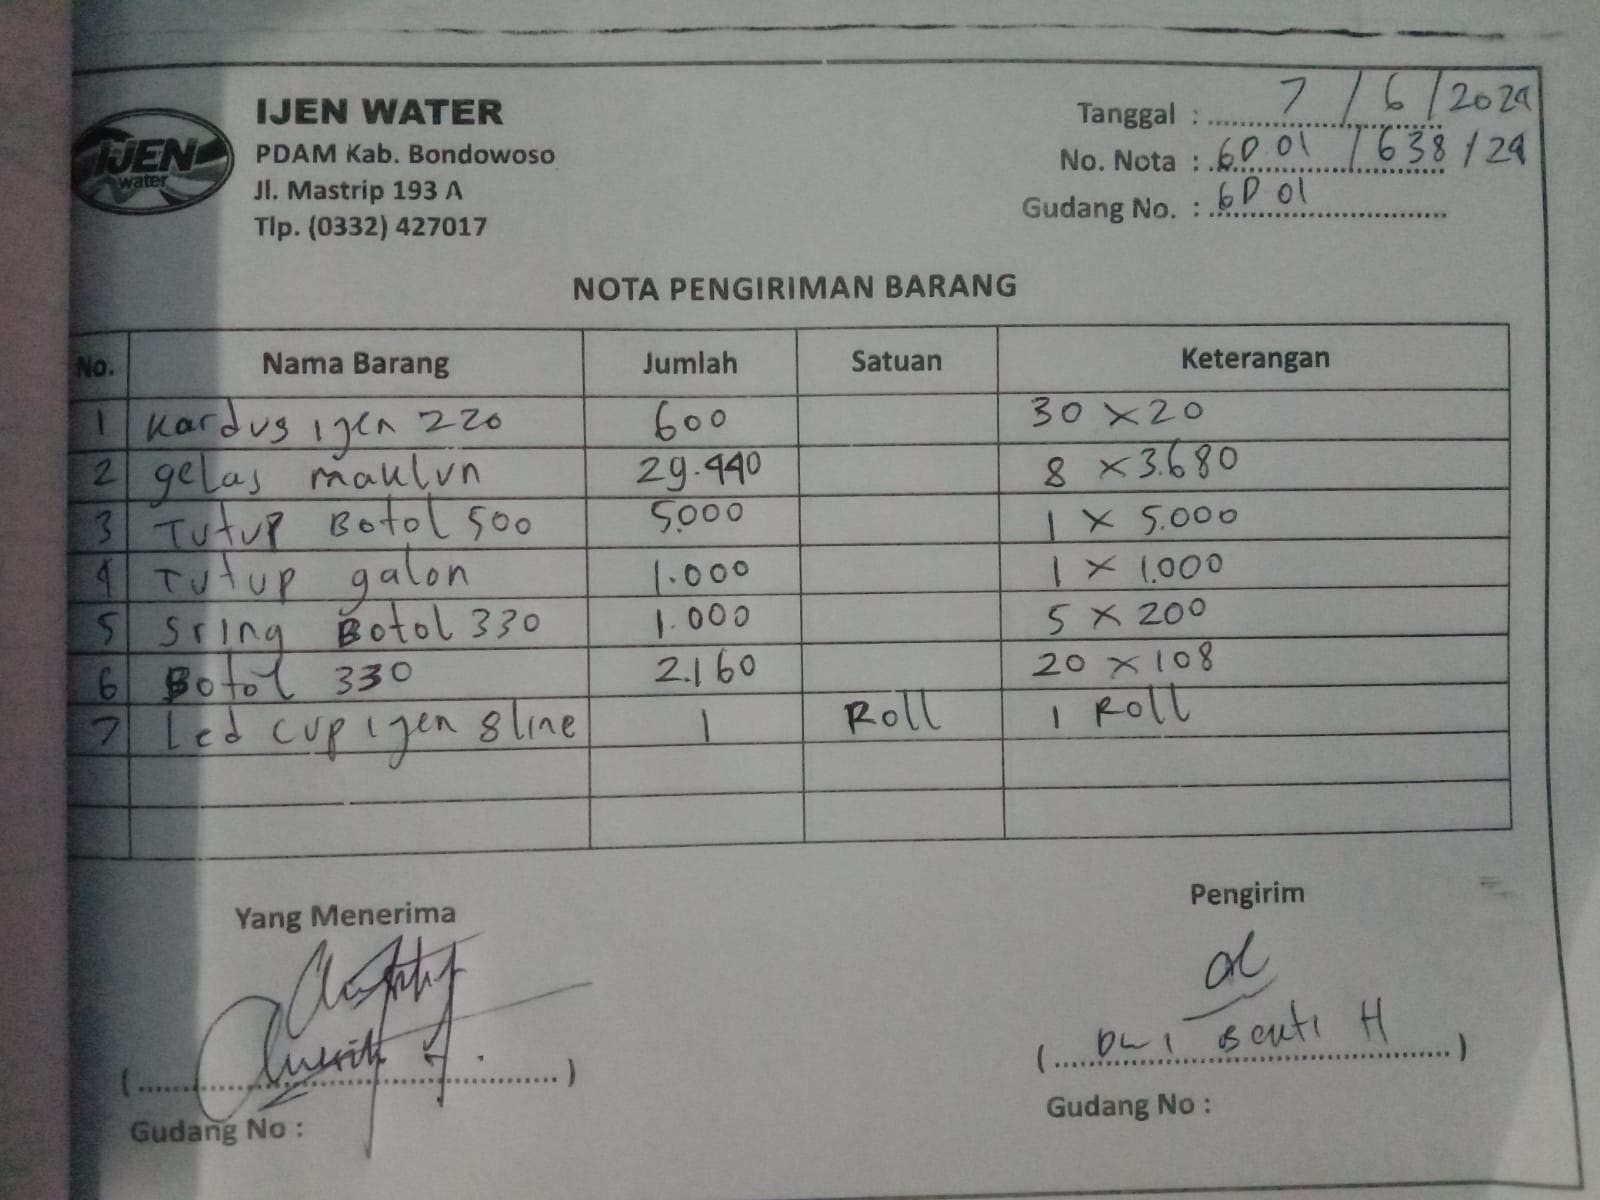 IJEN
water
IJEN WATER
PDAM Kab. Bondowoso
Jl. Mastrip 193 A
Tlp. (0332) 427017
Tanggal : 7 / 6 / 2024
No. Nota : GD 01 / 638 / 24
Gudang No. : GD 01
NOTA PENGIRIMAN BARANG
No. Nama Barang Jumlah Satuan Keterangan
1 Kardus ijen 220 600 30 x 20
2 gelas maklun 29.440 8 x 3.680
3 Tutup Botol 500 5.000 1 x 5.000
4 Tutup galon 1.000 1 x 1.000
5 Sring Botol 330 1.000 5 x 200
6 Botol 330 2.160 20 x 108
7 Led cup ijen 8 line 1 Roll 1 Roll
Yang Menerima
Pengirim
(....................) 
( Dwi H )
Gudang No :
Gudang No :